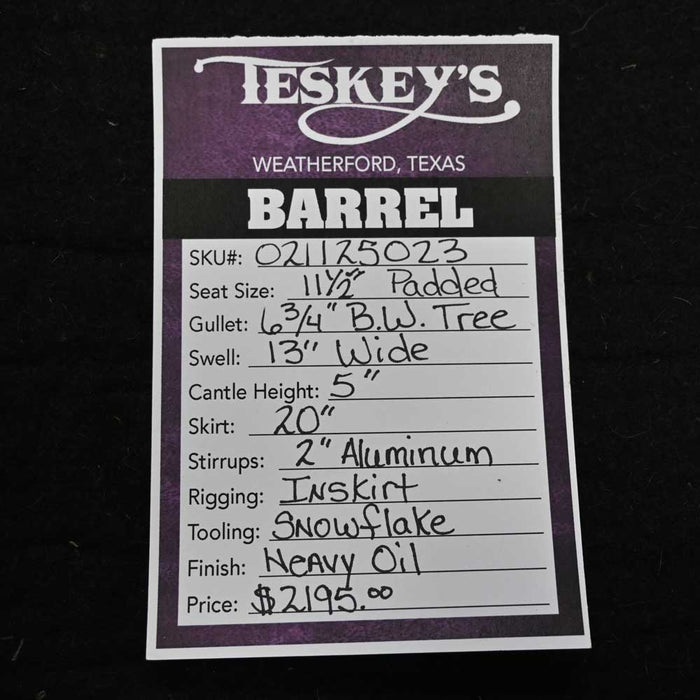 TESKEY'S
WEATHERFORD, TEXAS
BARREL
SKU#: 021125023
Seat Size: 11½" Padded
Gullet: 6¾" B.W. Tree
Swell: 13" Wide
Cantle Height: 5"
Skirt: 20"
Stirrups: 2" Aluminum
Rigging: Inskirt
Tooling: Snowflake
Finish: Heavy Oil
Price: $2195.00